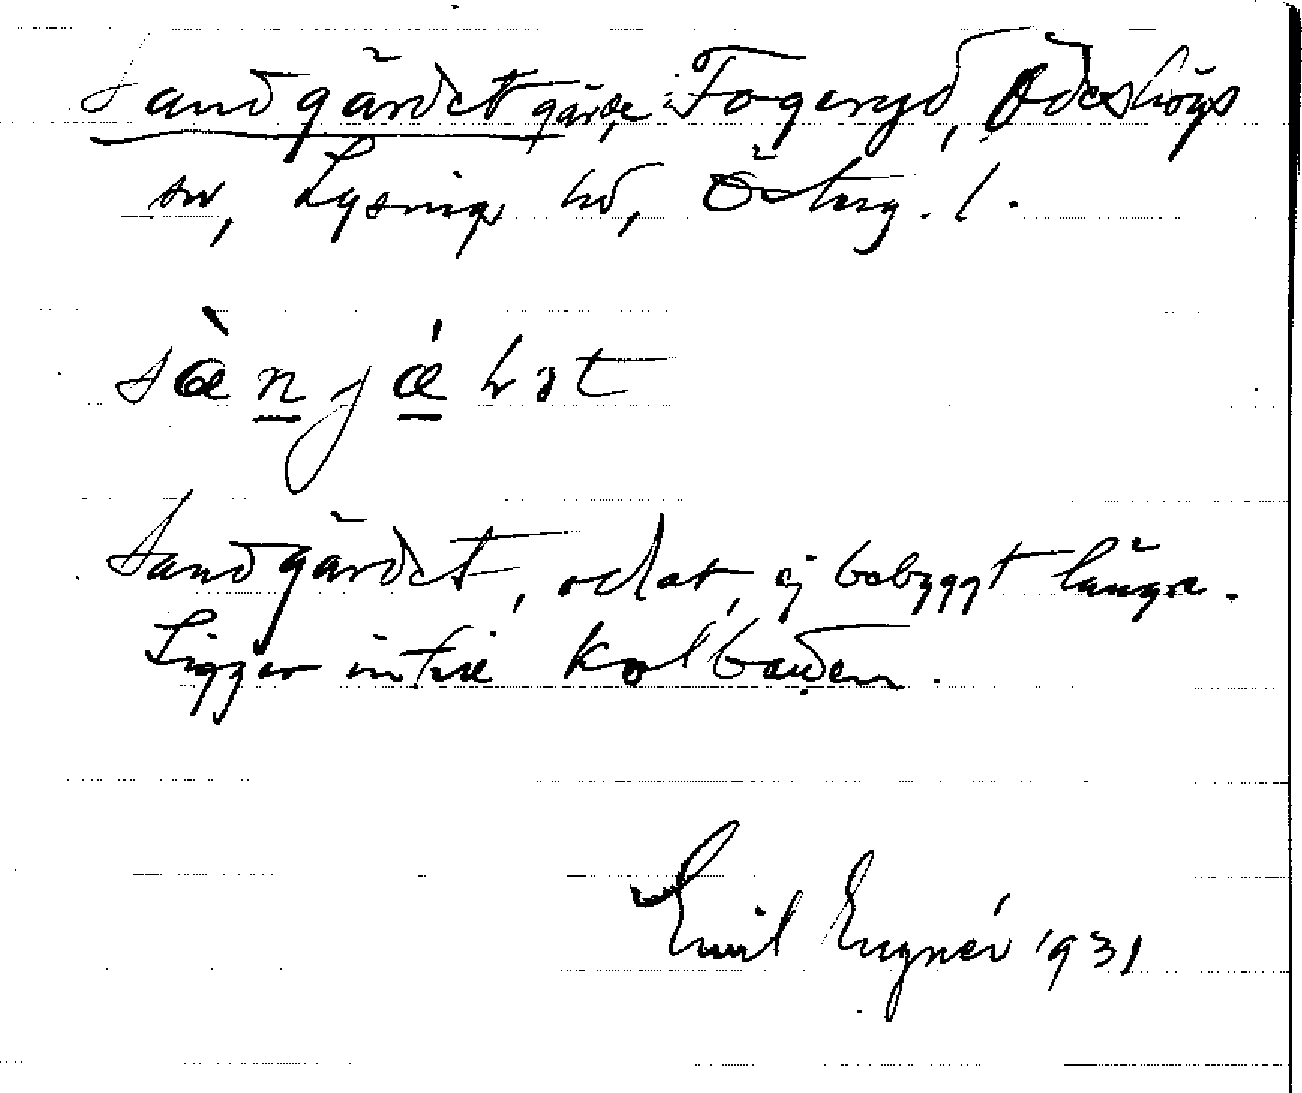 Sandgärdet gärde i Fogeryd, Ödeshögs
sn, Lysings hd, Österg. l.
sànjáɫət
Sandgärdet, odlat, ej bebyggt längre.
Ligger intill Kolbanden.
Emil Engnér 1931